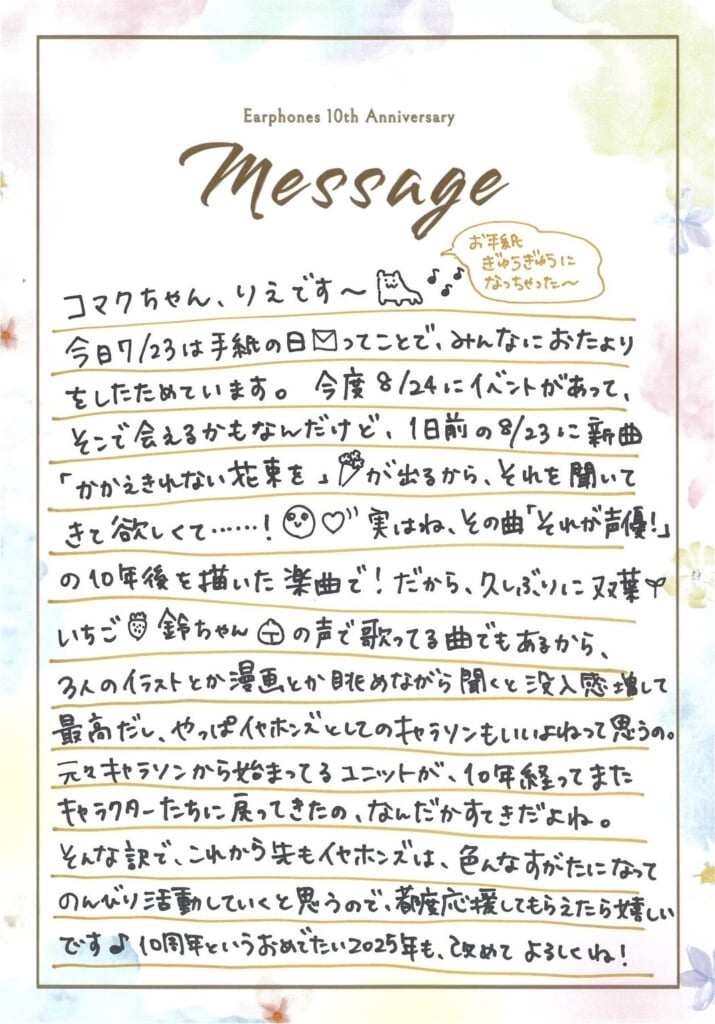 Earphones 10th Anniversary
Message
お手紙
ぎゅうぎゅうに
なっちゃった〜
コマクちゃん、りえです〜
今日7/23は手紙の日ってことで、みんなにおたより
をしたためています。 今度8/24にイベントがあって、
そこで会えるかもなんだけど、1日前の8/23に新曲
「かかえきれない花束を」が出るから、それを聞いて
きて欲しくて……! 実はね、その曲「それが声優!」
の10年後を描いた楽曲で!だから、久しぶりに双葉
いちご鈴ちゃんの声で歌ってる曲でもあるから、
3人のイラストとか漫画とか眺めながら聞くと没入感増して
最高だし、やっぱイヤホンズとしてのキャラソンもいいよねって思うの。
元々キャラソンから始まってるユニットが、10年経ってまた
キャラクターたちに戻ってきたの、なんだかすてきだよね。
そんな訳で、これから先もイヤホンズは、色んなすがたになって
のんびり活動していくと思うので、都度応援してもらえたら嬉しい
です♪10周年というおめでたい2025年も、改めてよろしくね!